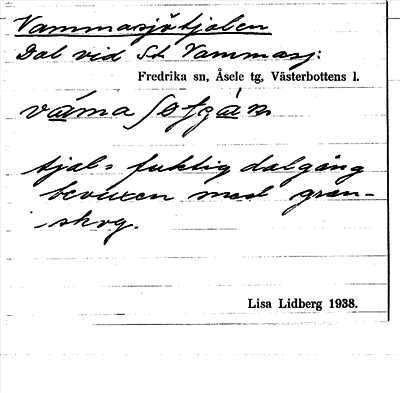 Vammasjötjälen
Dal vid St. Vammasj:
Fredrika sn, Åsele tg, Västerbottens l.
tjäl = fuktig dalgång
bevuxen med gran-
skog.
Lisa Lidberg 1938.